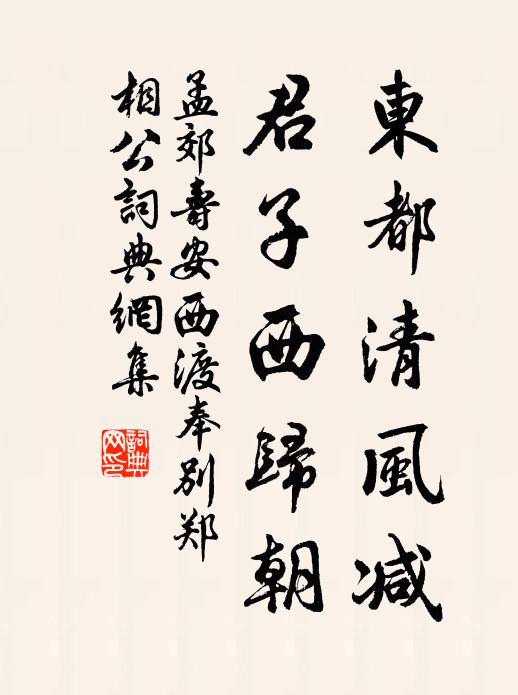 東都清風减
君子西歸朝
孟郊壽安西渡奉别郑
相公詞典網集
詞典
网印